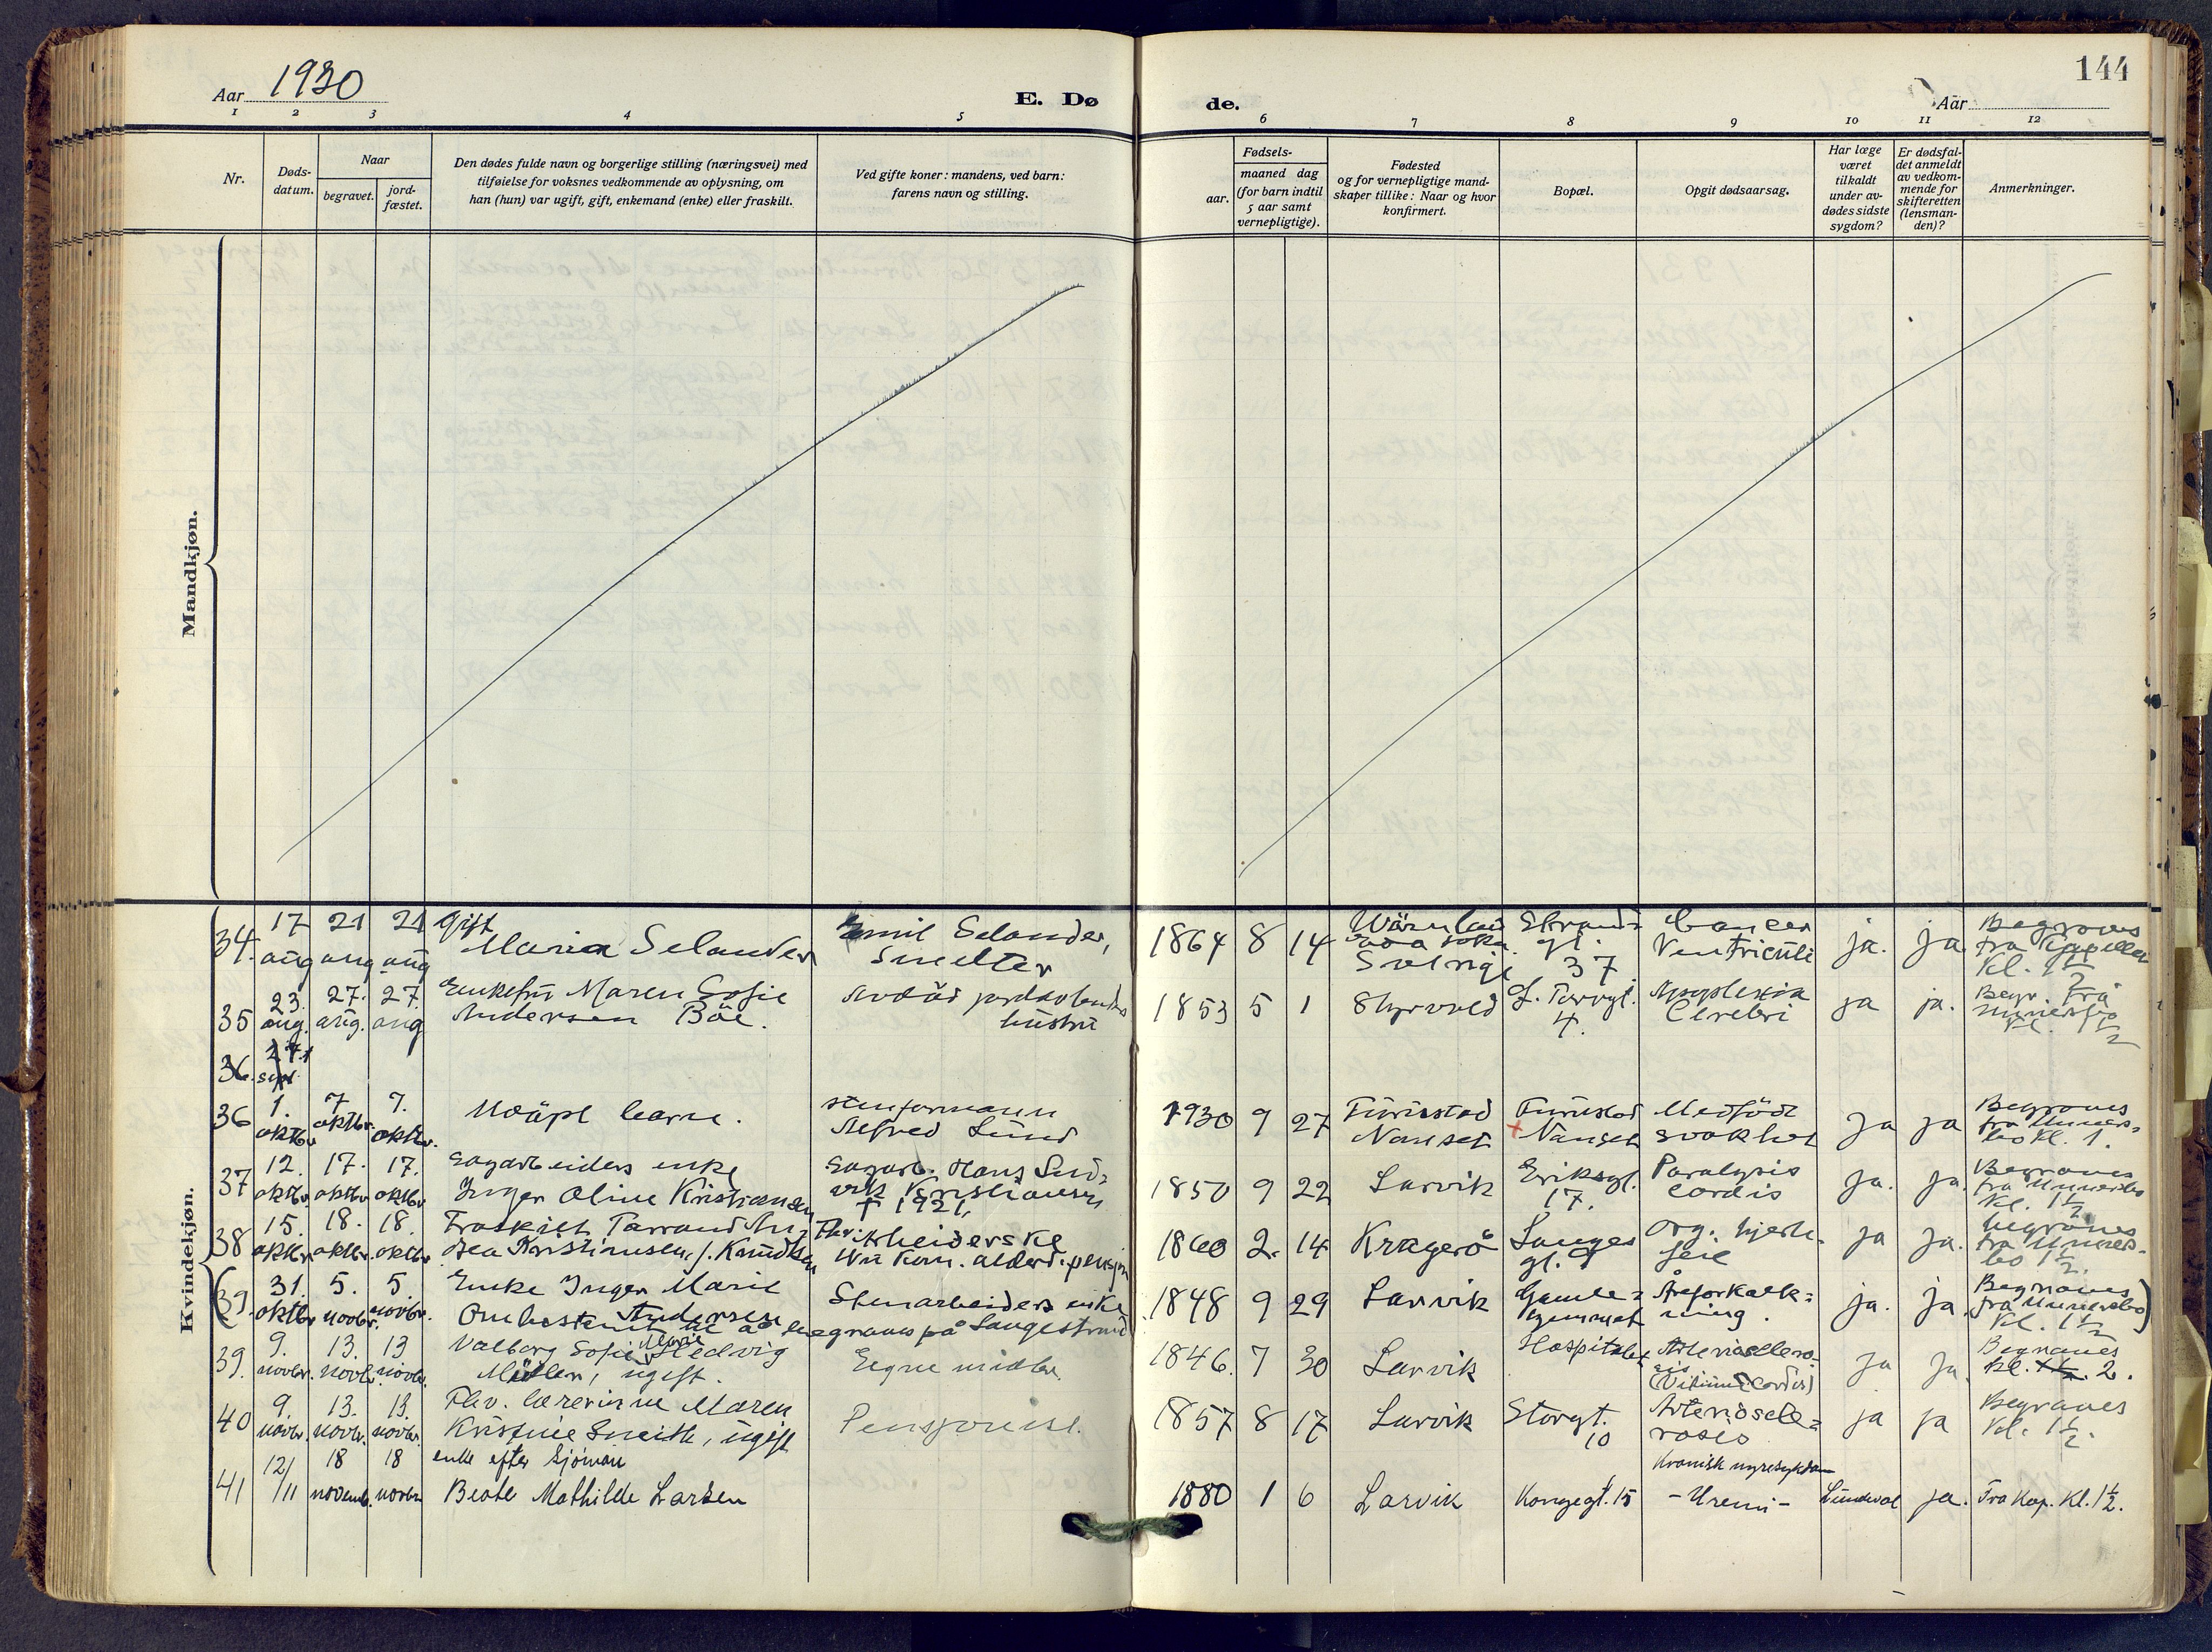 144
Aar 1930
E. Døde.
Aar
1 2 3 4 5 6 7 8 9 10 11 12
Nr.
Døds-
datum.
Naar
begravet.
jord-
fæstet.
Den dødes fulde navn og borgerlige stilling (næringsvei) med
tilføielse for voksnes vedkommende av oplysning, om
han (hun) var ugift, gift, enkemand (enke) eller fraskilt.
Ved gifte koner: mandens, ved barn:
farens navn og stilling.
Fødsels-
aar.
maaned dag
(for barn indtil
5 aar samt
vernepligtige).
Fødested
og for vernepligtige mand-
skaper tillike: Naar og hvor
konfirmert.
Bopæl.
Opgit dødsaarsag.
Har læge
været
tilkaldt
under av-
dødes sidste
sygdom?
Er dødsfal-
det anmeldt
av vedkom-
mende for
skifteretten
(lensman-
den)?
Anmerkninger.
Mandkjøn.
Kvindekjøn.
34. 17 aug 21 aug 21 aug
gift
Maria Selander
Emil Selander,
Smelter
1864 8 14
Wärmland
Sverige
Strand-
gt.
37
Cancer
Ventriculi
ja. ja
Begraves
fra Kapellet
Kl. 1½
35 23. aug. 27. aug. 27. aug
Enkefru Maren Sofie
Andersen Böe.
hustru
1853 5 1
4.
Apoplexia
Cerebri
ja ja.
Begr. fra
Kl. 1½
36. 27. sept.
36 1. oktbr 7 oktbr. 7. oktbr.
Udöpt barn.
stenformann
Alfred Lund
1930 9 27
Furustad
Nanset
Furustad
Nanset
Medfödt
svakhet
Ja ja
Begraves
Kl. 1.
37 12. oktbr 17. oktbr 17. oktbr
Sagarbeiders enke
Inger Oline Kristiansen
Sagarb. Hans Lud-
vik Kristiansen
† 1921.
1850 9 22
Larvik
Eriksgt.
17.
Paralysis
cordis
ja. ja.
Begraves
Kl. 1½
38 15. oktbr. 18. oktbr. 18. oktbr
Fraskilt
Kristiansen, f. Knudtsen
Nu Kom. alderd. pensjon
1860 2. 14
Kragerö
Langes
gt. 9
Org. hjerte-
feil
ja ja.
begraves
1½.
(39. 31. oktbr 5. novbr. 5. novbr.
Enke Inger Marie
Andersen
Stenarbeiders enke
Ombestemt til at begraves på Langestrand
1848 9 29
Larvik
Gamle-
hjemmet
Åreforkalk-
ning.
ja. ja.
Begraves
Kl. 1½)
39. 9. novbr. 13. novbr. 13 novbr.
Valborg Sofie Marie Hedvig
Möller, ugift.
Egne midler.
1846. 7 30
Larvik
Hospitalet
Arteriosclero-
sis
(Vitium cordis)
ja ja.
Begraves
Kl. 2.
40 9. novbr. 13. novbr. 13. novbr.
Fhv. lærerinne Maren
Kristine Smith, ugift
Pensjonist.
1857 8 17
Larvik
Storgt.
10
Arterioscle-
roses
ja ja
Begraves
Kl. 1½.
41 12/11 18 novemb. 18 novbr.
enke efter sjömann
Beate Mathilde Larsen
1880 1 6
Larvik
Kongegt. 15
Kronisk nyresykdom
- Uremi -
Lindval
ja.
Fra Kap. Kl. 1½.